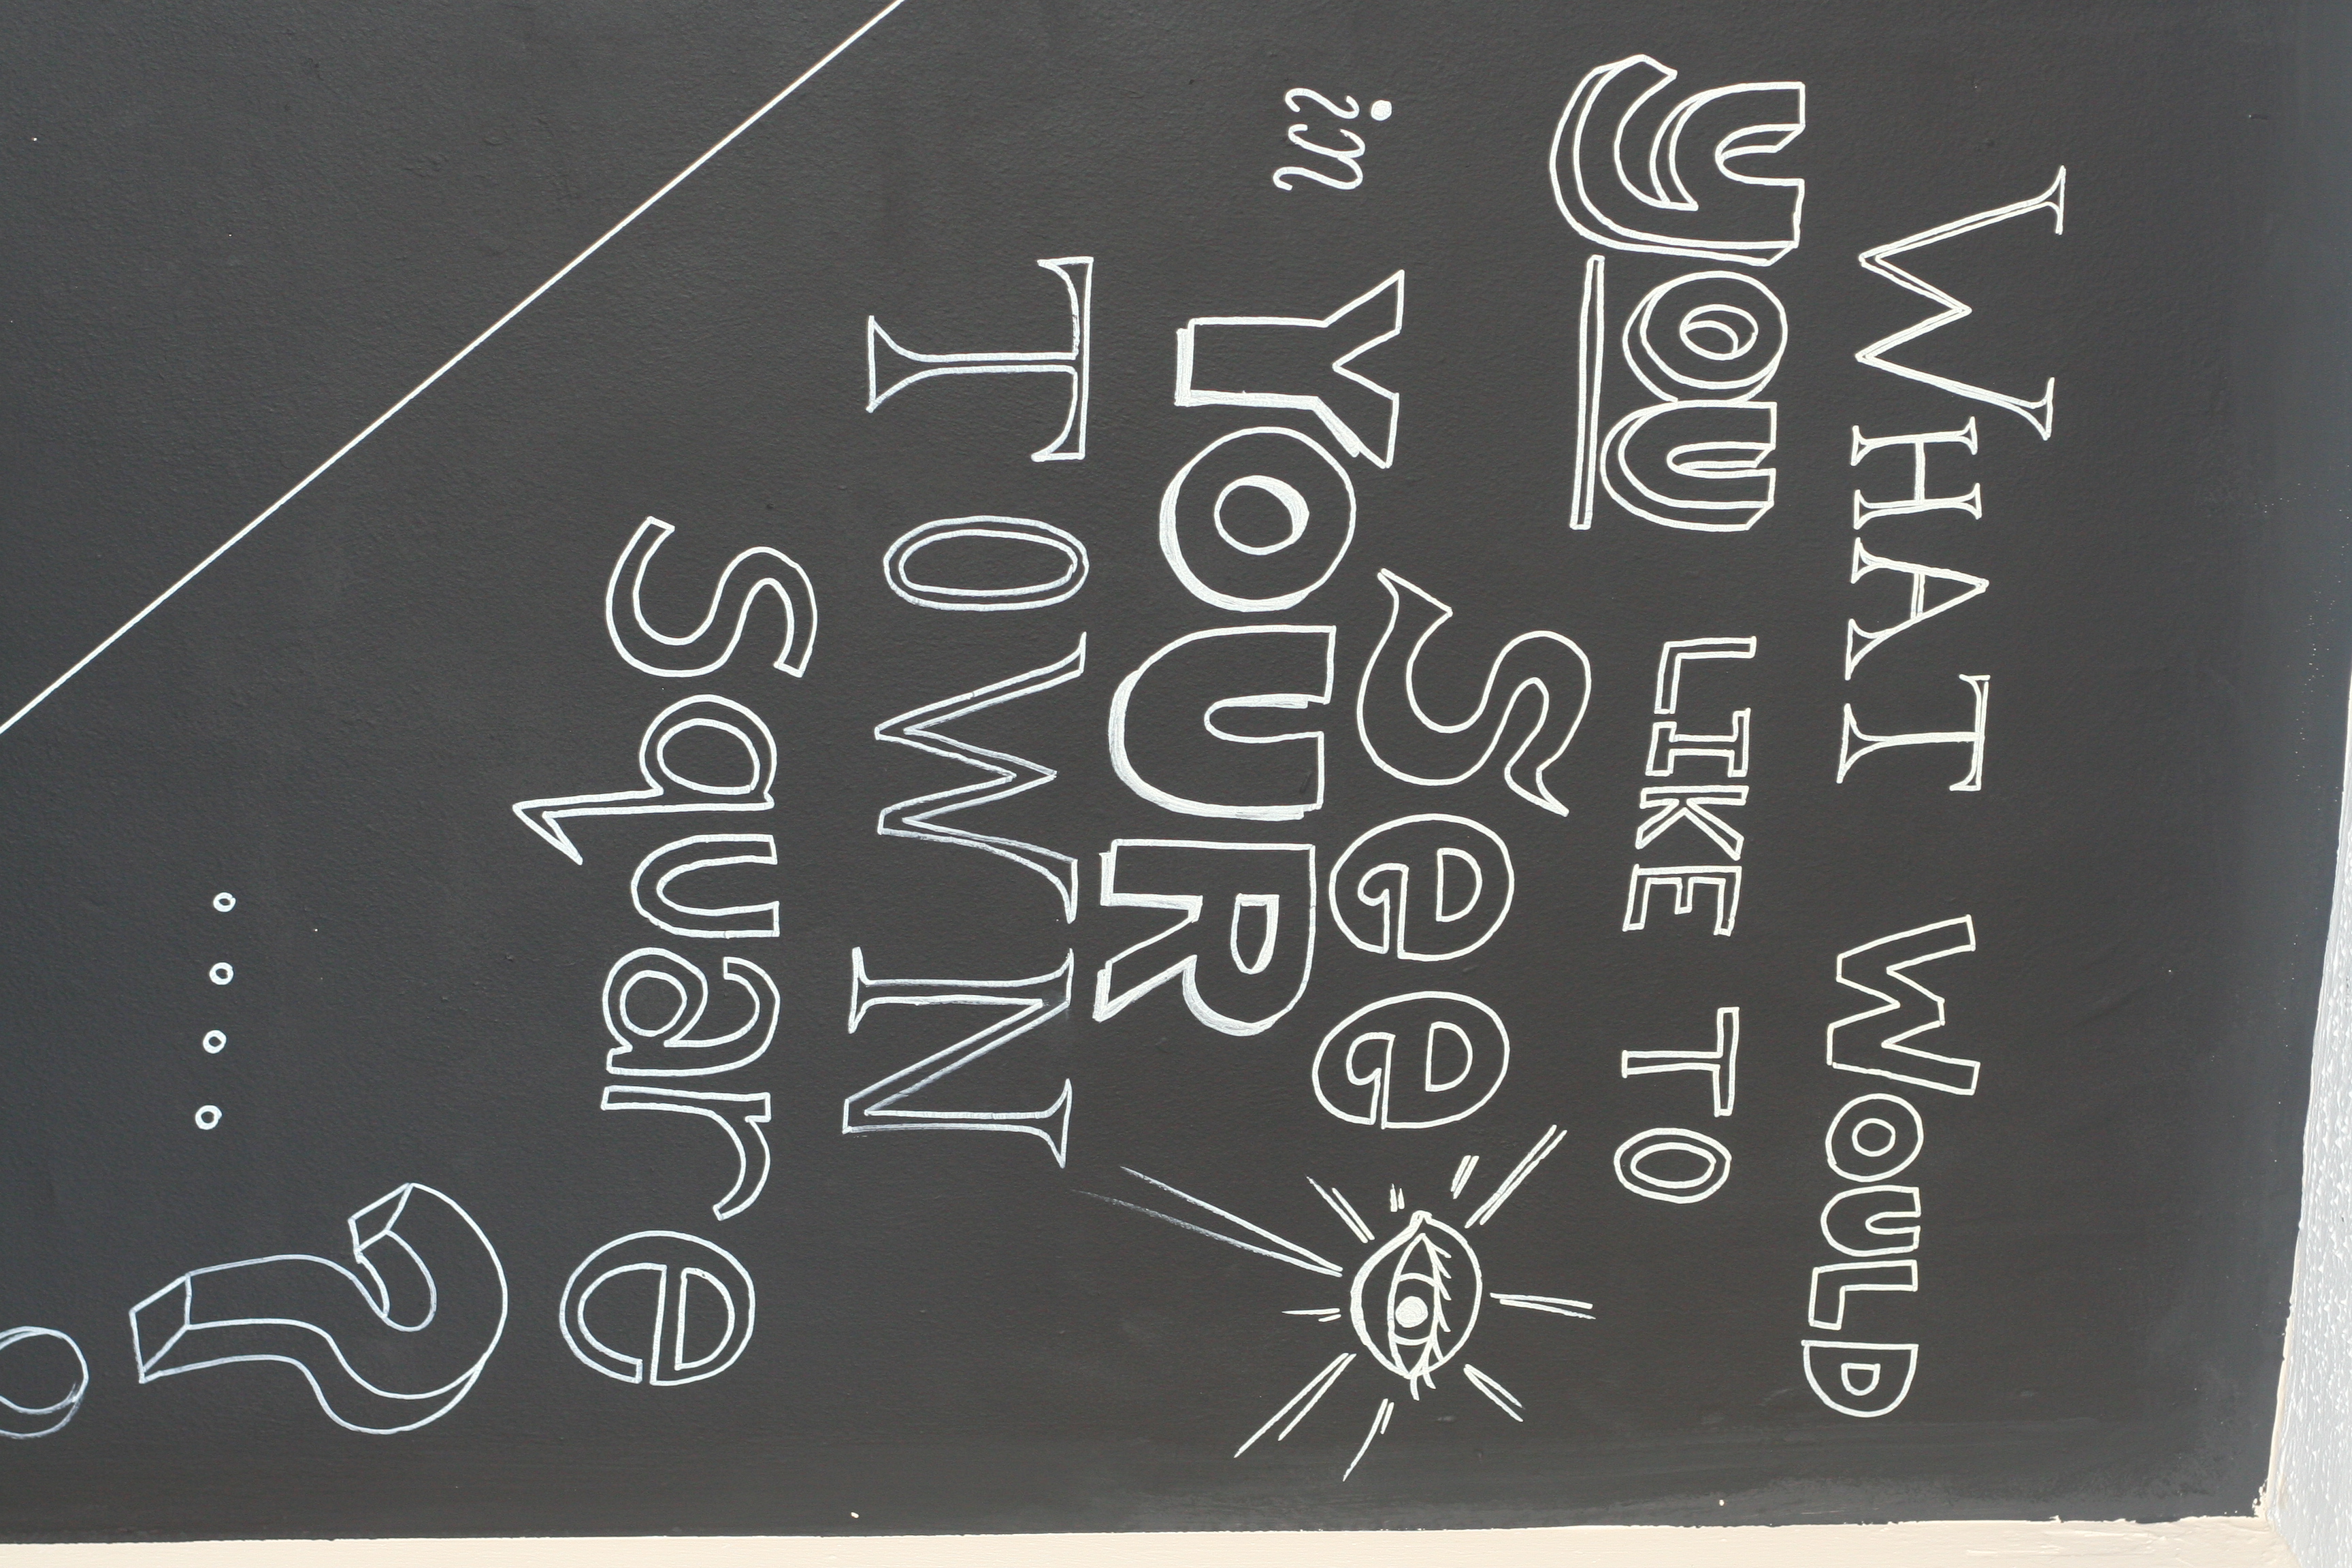 WHAT WOULD
you LIKE TO
See
in YOUR
TOWN
square
....?